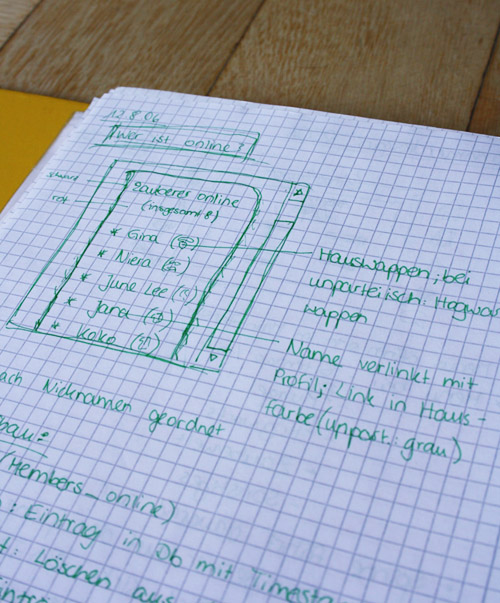 12.8.06
Wer ist online?
rot
Zauberer online
(insgesamt 8)
* Gina
* Niera
* June Lee
* Jana
* Koko
Hauswappen; bei
unparteiisch: Hogwar
wappen
Name verlinkt mit
Profil; Link in Haus-
farbe (unpart.: grau)
ach Nicknamen geordnet
bau:
(Members_online)
: Eintrag in Db mit Timesta
t: Löschen aus